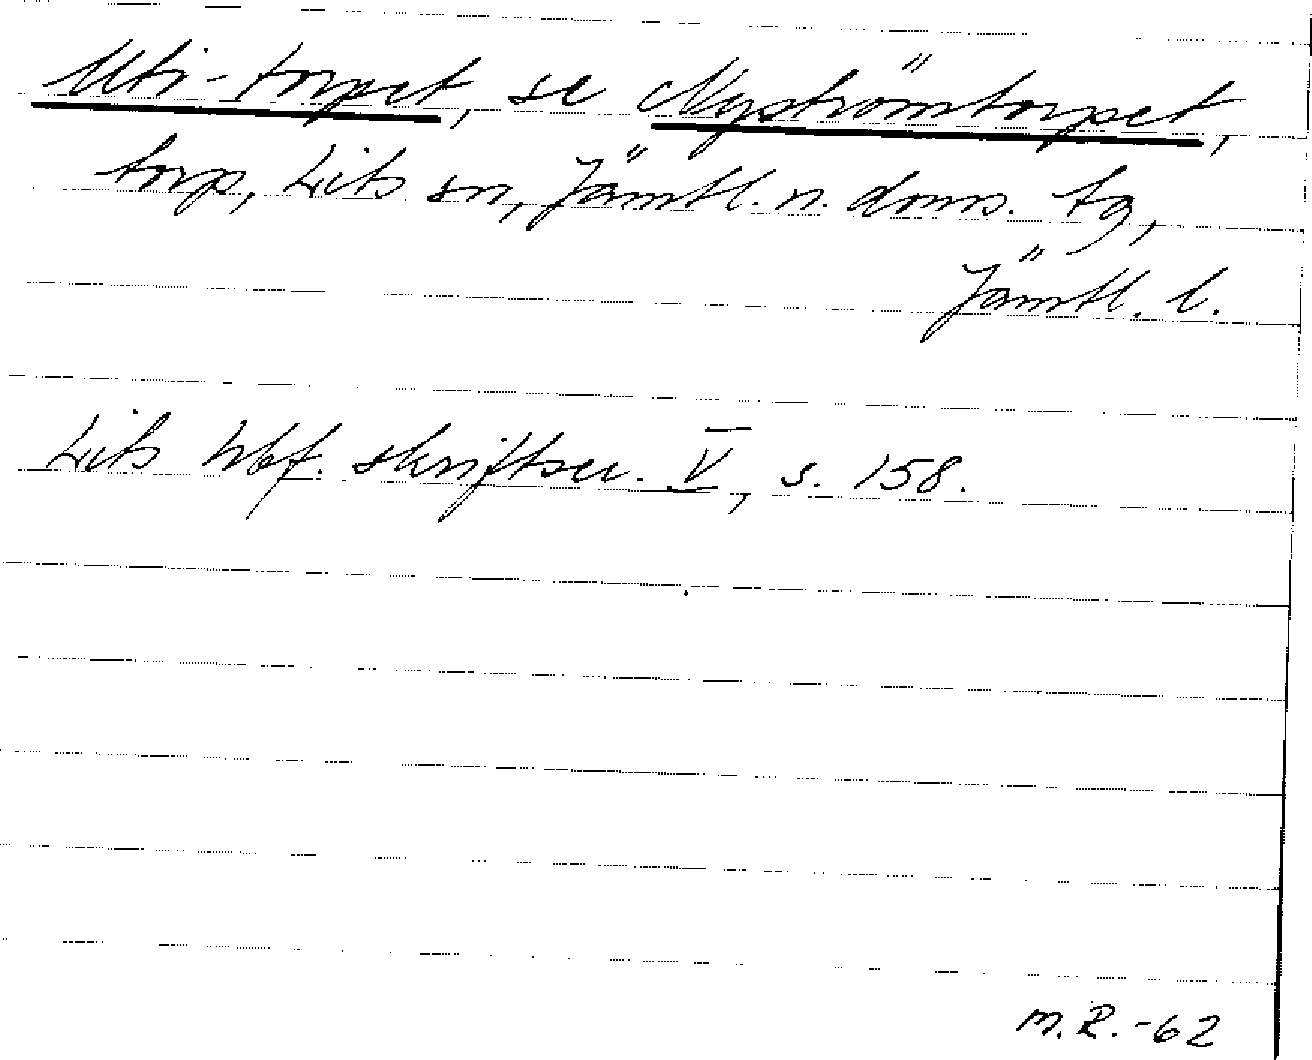 Uti-torpet, se Nyströmtorpet,
torp, Lits sn, Jämtl. n. doms. tg,
Jämtl. l.
Lits hbf. skriftser. V, s. 158.
M.R.-62